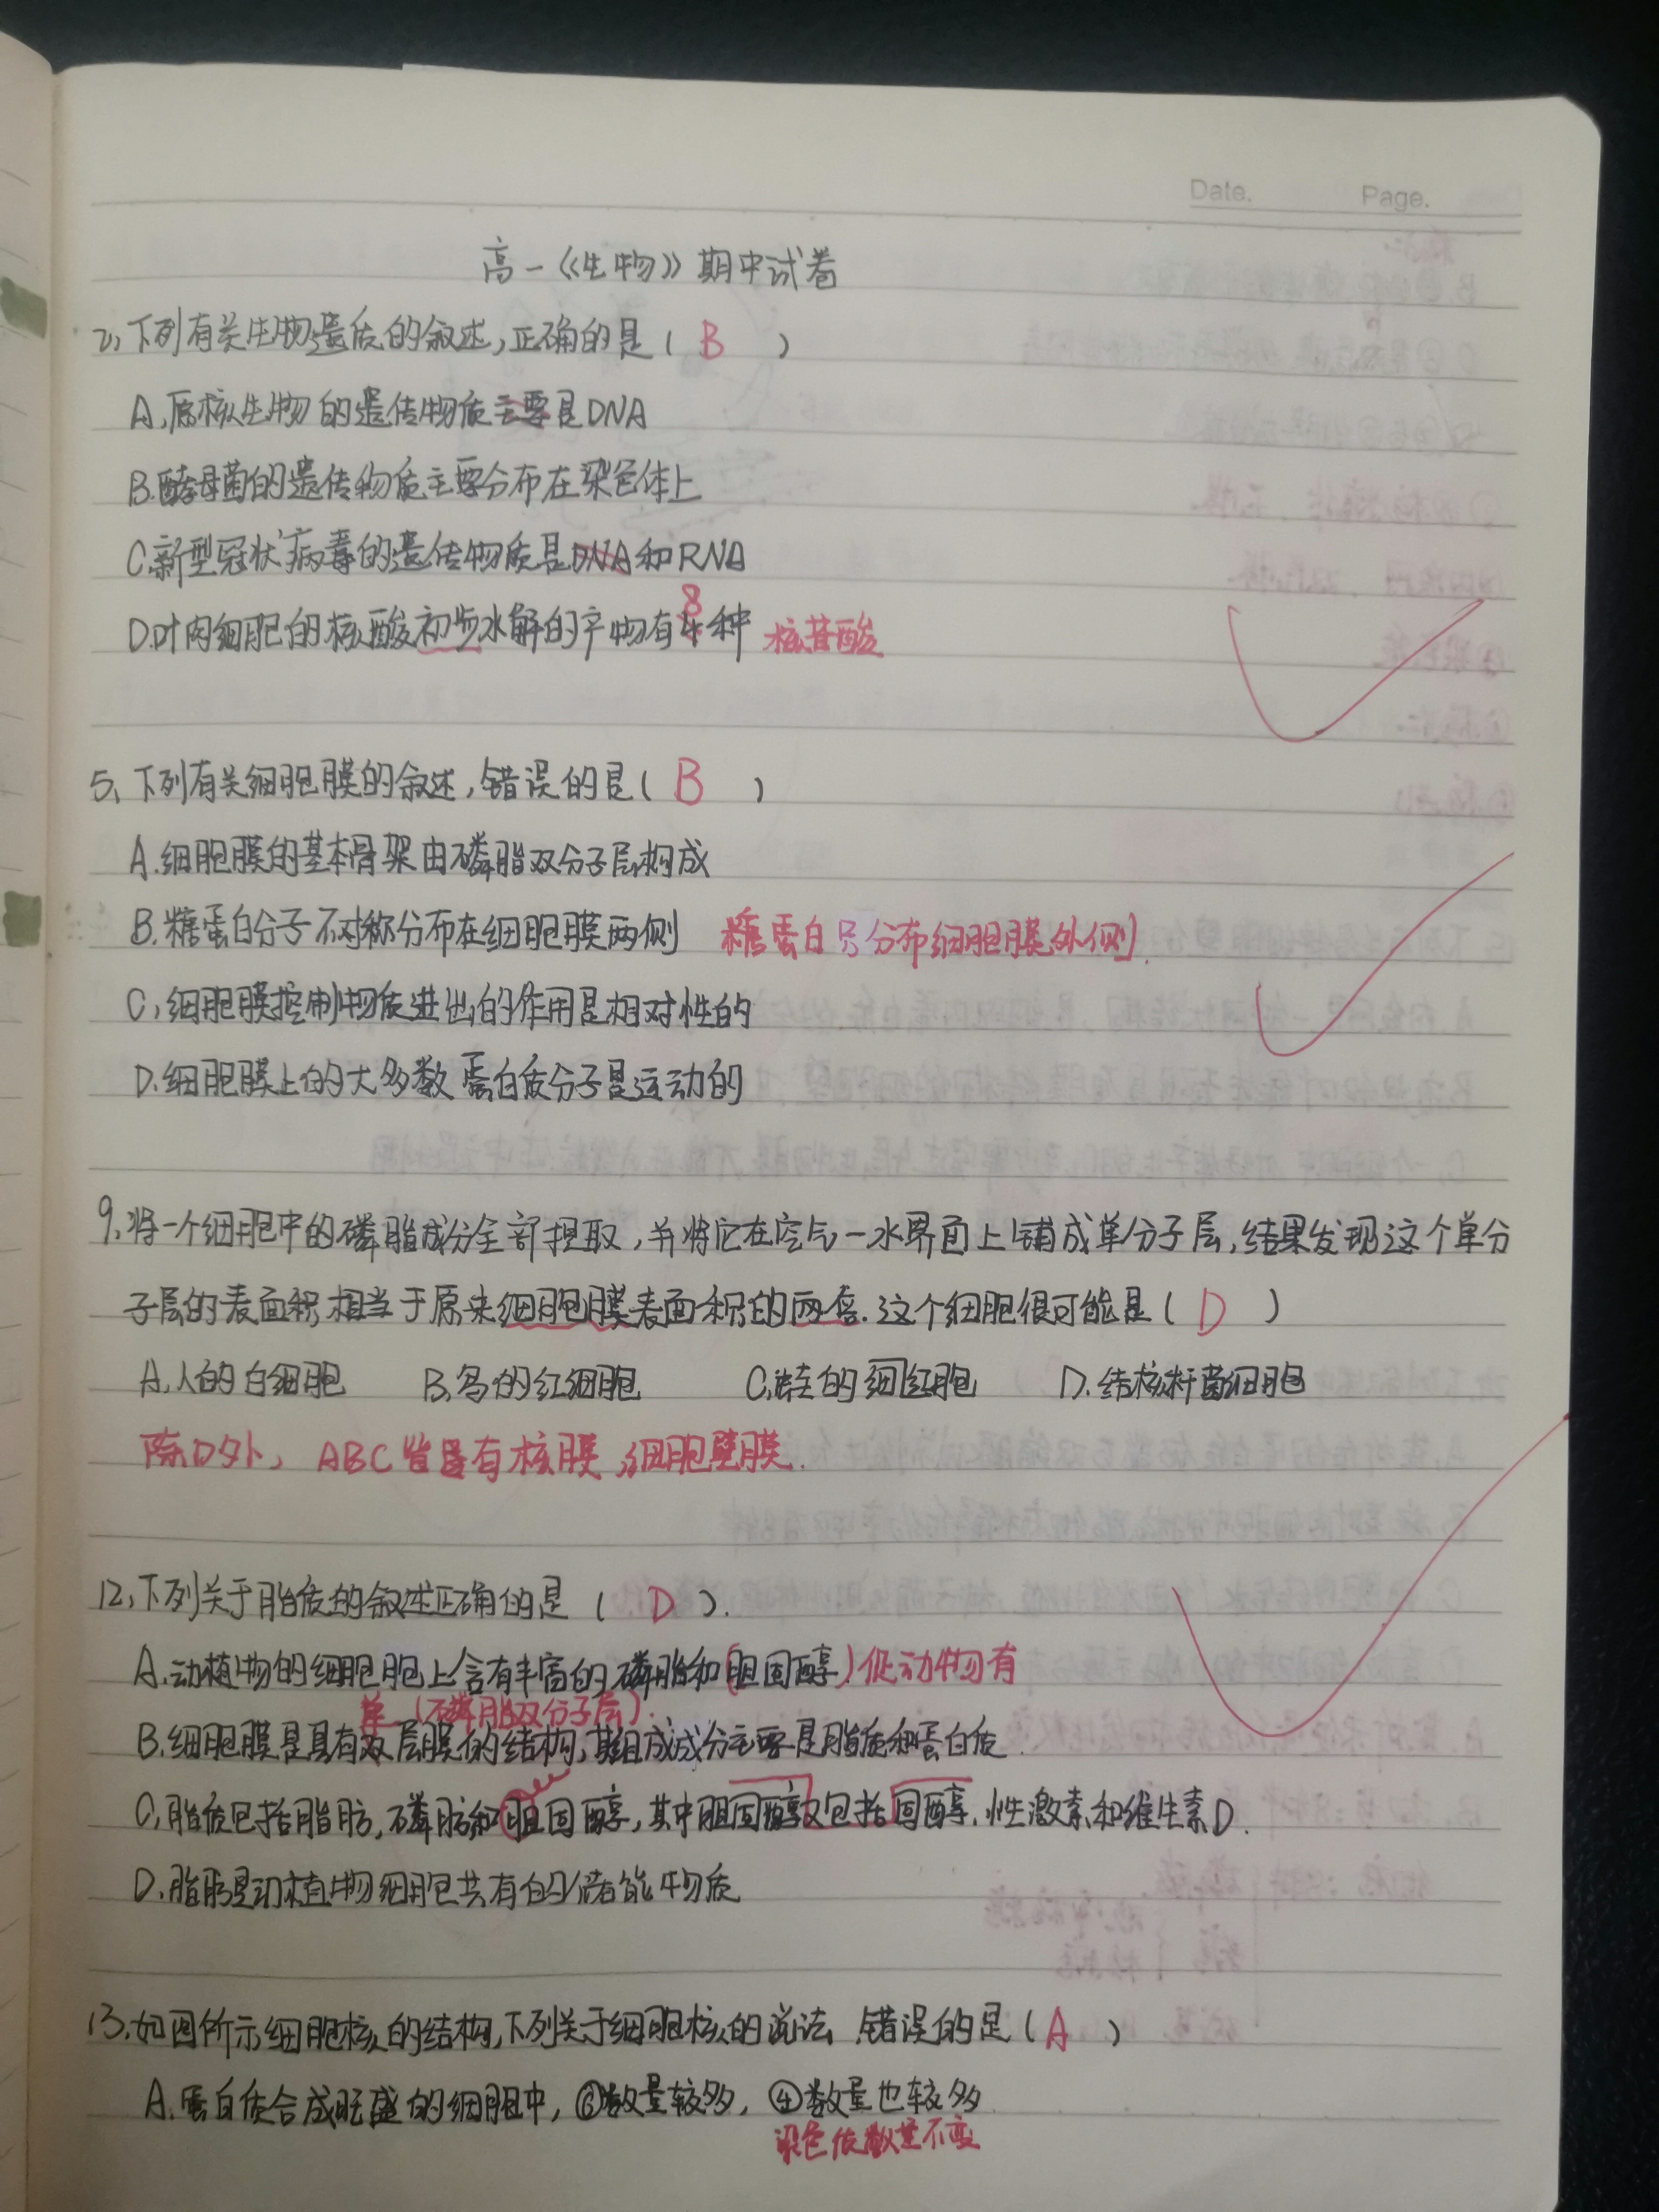 Date. Page.
高一《生物》期中试卷
2、下列有关生物遗质的叙述,正确的是( B )
A、原核生物的遗传物质主要是DNA
B.酵母菌的遗传物质主要分布在染色体上
C.新型冠状病毒的遗传物质是DNA和RNA
8
D.叶肉细胞的核酸初步水解的产物有4种 核苷酸
5、下列有关细胞膜的叙述,错误的是( B )
A.细胞膜的基本骨架由磷脂双分子层构成
B.糖蛋白分子不对称分布在细胞膜两侧 糖蛋白只分布细胞膜外侧.
C,细胞膜控制物质进出的作用是相对性的
D.细胞膜上的大多数蛋白质分子是运动的
9、将一个细胞中的磷脂成分全部提取,并将它在空气一水界面上铺成单分子层,结果发现这个单分
子层的表面积相当于原来细胞膜表面积的两倍.这个细胞很可能是( D )
A.人的白细胞 B.鸟的红细胞 C,蛙的红细胞 D.结核杆菌细胞
除D外, ABC皆具有核膜,细胞壁膜.
12、下列关于脂质的叙述正确的是( D ).
A.动植物的细胞胞上含有丰富的磷脂和(胆固醇)促动物有
单(磷脂双分子层).
B.细胞膜是具有双层膜的结构,其组成成分主要是脂质和蛋白质.
C,脂质包括脂肪,磷脂和胆固醇,其中胆固醇又包括固醇.性激素和维生素D.
D.脂肪是动植物细胞共有的储能物质
13.如图所示细胞核的结构,下列关于细胞核的说法 错误的是( A )
A.蛋白质合成旺盛的细胞中,⑥数量较多,④数量也较多
染色质数量不变